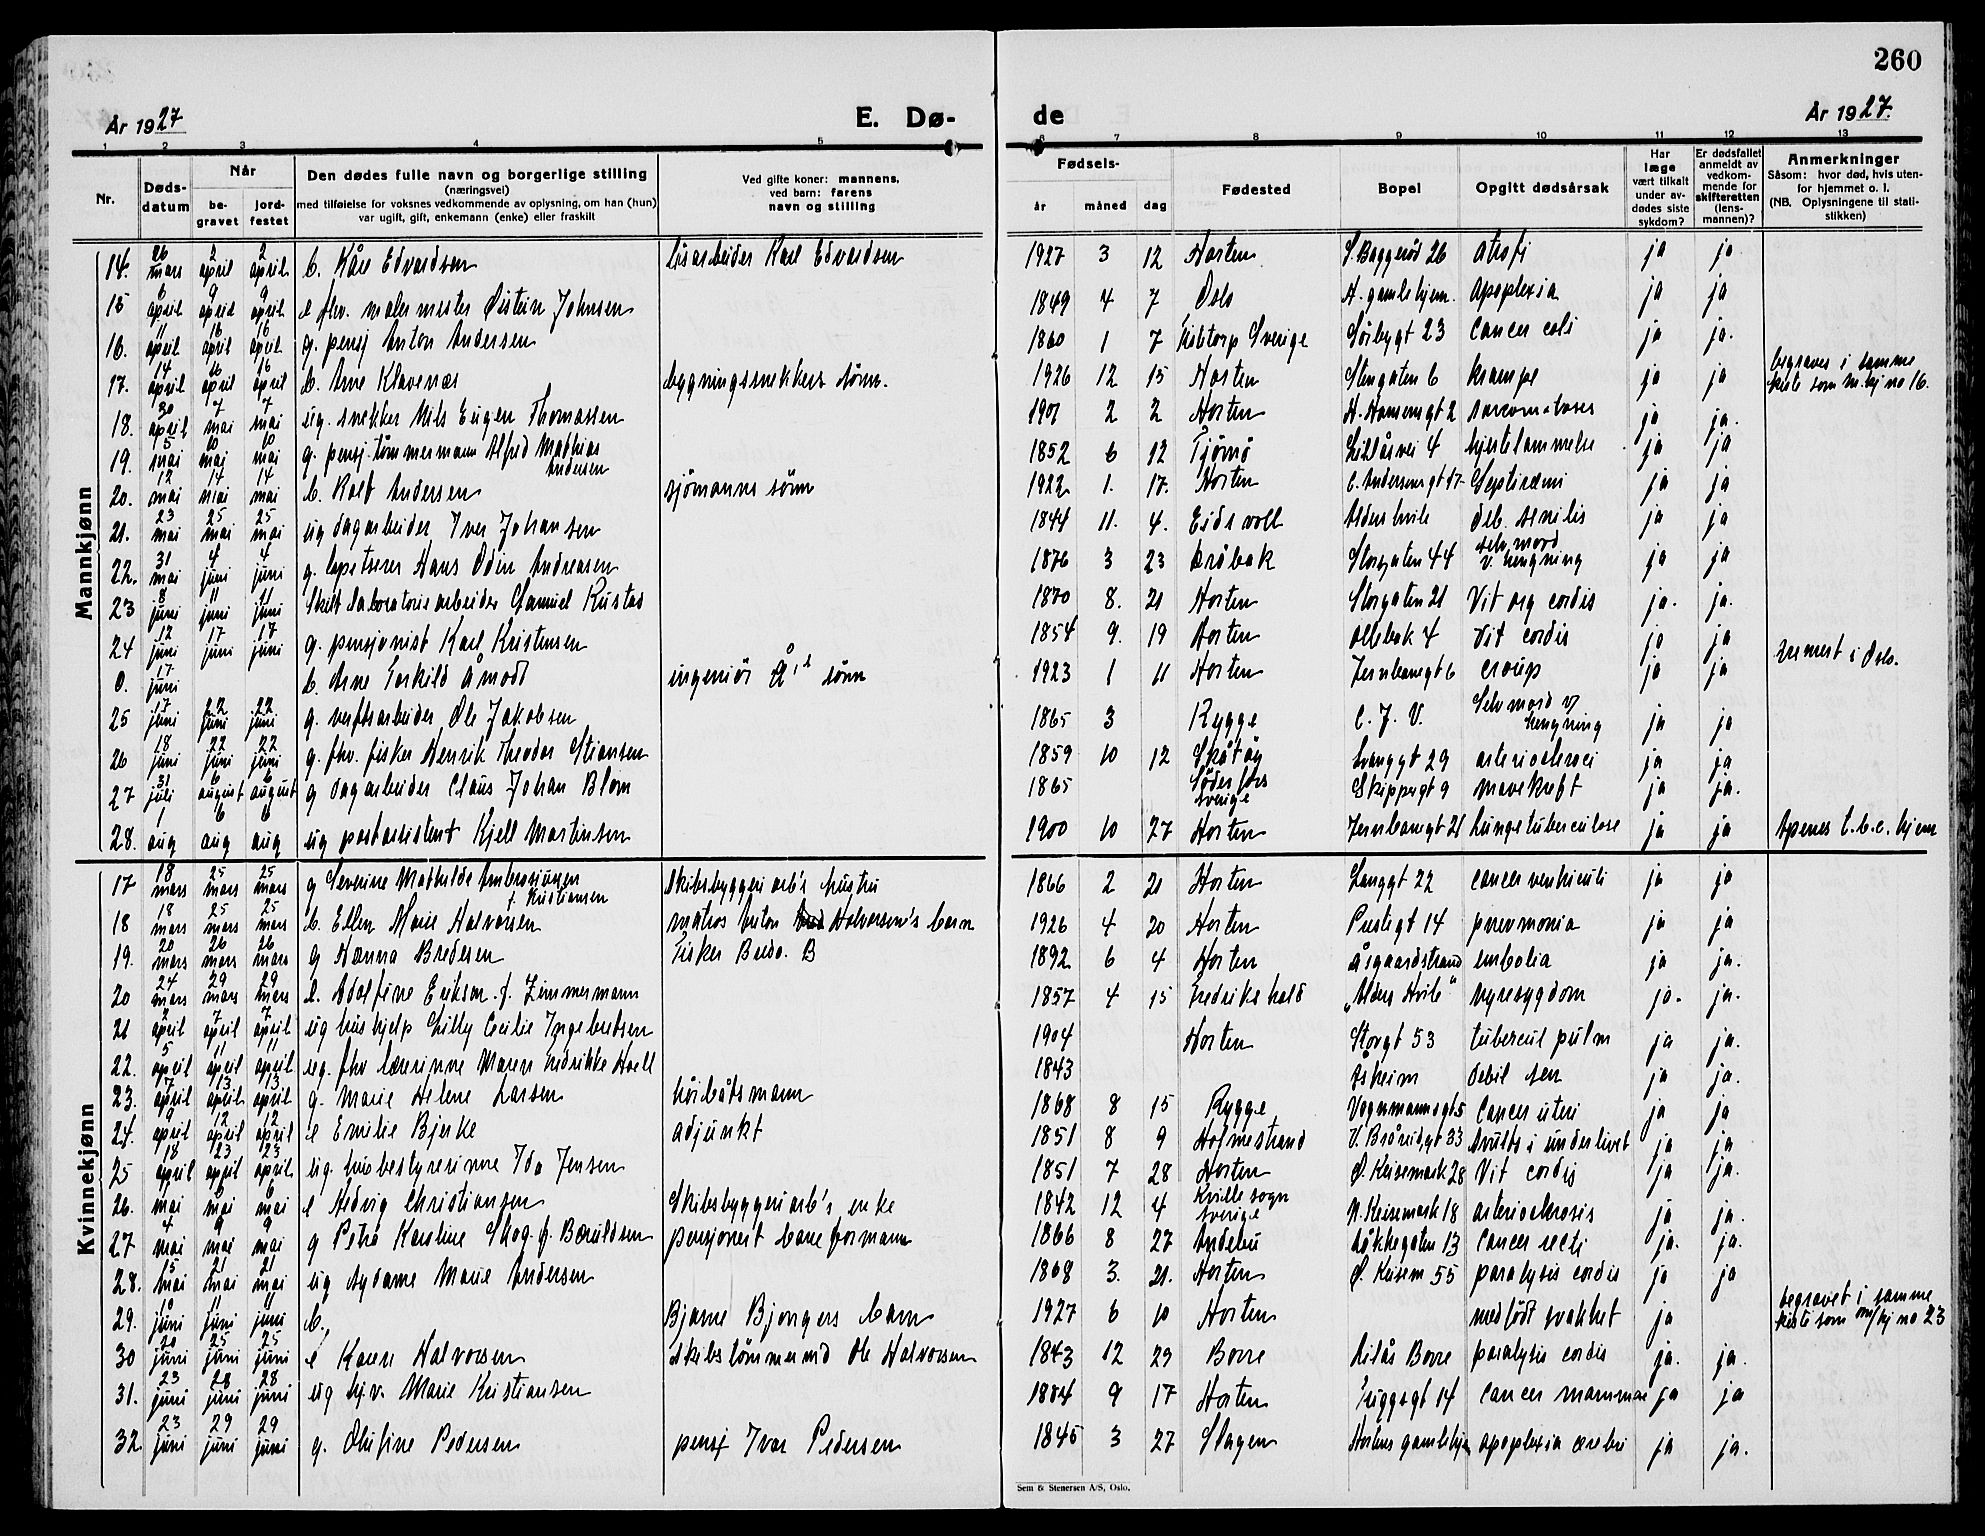 260
År 1927
E. Dø-
de
År 1927.
1 2 3 4 5 6 7 8 9 10 11 12 13
Nr.
Døds-
datum
Når
be-
gravet
jord-
festet
Den dødes fulle navn og borgerlige stilling
(næringsvei)
med tilføielse for voksnes vedkommende av oplysning, om han (hun)
var ugift, gift, enkemann (enke) eller fraskilt
Ved gifte koner: mannens,
ved barn: farens
navn og stilling
Fødsels-
år måned dag
Fødested
Bopel
Opgitt dødsårsak
Har
læge
vært tilkalt
under av-
dødes siste
sykdom?
Er dødsfallet
anmeldt av
vedkom-
mende for
skifteretten
(lens-
mannen)?
Anmerkninger
Såsom: hvor død, hvis uten-
for hjemmet o. l.
(NB. Oplysningene til stati-
stikken)
Mannkjønn
14. 26 mars 2 april 2 april b. Kåre Edvardsen Karl Edvardsen 1927 3 12 Horten S. Baggerød 26 atrofi ja ja
15 6 april 9 april 9 april e fhv. malermester Øistein Johnsen 1849 4 7 Oslo H. gamlehjem. apoplexia ja ja
16. 11 april 16 april 16 april g. pensj Anton Andersen 1860 1 7 Sverige Sörbygt 23 cancer coli ja ja.
17. 14 april 16 april 16 april b. Arne Klavenæs bygningssnekkers sönn. 1926 12 15 Horten Stengaten 6 krampe ja ja begraves i samme kiste som m.kj no 16.
18. 30 april 7 mai 7 mai ug. snekker Nils Eugen Thomassen 1901 2 2 Horten H. Hansensgt 2 sarcomatoses ja ja.
19. 5 mai 10 mai 10 mai g. pensj. tömmermann Alfred Mathias Andersen 1852 6 12 Tjømö Lillåsvei 4 hjertelammelse ja ja
20. 12 mai 14 mai 14 mai b. Rolf Andersen sjömanns sönn 1922 1. 17. Horten C. Andersensgt 17 Septicæmi ja ja
21. 23 mai 25 mai 25 mai ug dagarbeider Iver Johansen 1844 11. 4. Eidsvoll Aldershvile deb. senilis ja ja
22. 31 mai 4 juni 4 juni g. Hans Odin Andreasen 1876 3 23 Dröbak Storgaten 44 selvmord v. hengning ja ja
23 8 juni 11 juni 11 juni Skilt laboratoriearbeider Samuel Rustad 1870 8. 21 Horten Storgaten 21 Vit org cordis ja. ja.
24 12 juni 17 juni 17 juni g. pensjonist Karl Kristensen 1854 9. 19 Horten Ollebak 4 Vit cordis ja ja
0. 17 juni b. Arne Torkild Åmodt ingeniör Å's sönn 1923 1 11 Horten Jernbanegt 6 croup ja ja kremert i Oslo.
25 17 juni 22 juni 22 juni g. verftsarbeider Ole Jakobsen 1865 3 Rygge C. J. V. Selvmord v/ hengning ja ja
26 18 juni 22 juni 22 juni g. fhv. fisker Henrik Theodor Stiansen 1859 10 12 Skåtöy Langgt 29 ja ja
27 31 juli 6 august 6 august g dagarbeider Claus Johan Blom 1865 Söderfors Sverige Skippergt 9 mavekreft ja ja.
28. 1 aug 6 aug 6 aug ug postassistent Kjell Martinsen 1900 10 27 Horten Jernbanegt 21 lungetuberculose ja ja Apenes t.b.c. hjem
Kvinnekjønn
17 18 mars 25 mars 25 mars g Severine Mathilde Ambrosiusen f. Kristiansen Skibsbyggeriarb's hustru 1866 2 21 Horten Langgt 22 cancer ventriculi ja ja
18 18 mars 25 mars 25 mars b. Ellen Marie Halvorsen matros Anton Halvorsen's barn 1926 4 20 Horten Prestegt 14 pnevmonia ja ja
19. 20 mars 26 mars 26 mars g Hanna Bredesen Fisker Bredo. B 1892 6 4 Horten Åsgaardstrand embolia ja ja.
20 24 mars 29 mars 29 mars e. Adolfine Erikson f. Zimmermann 1857 4 15 Fredrikshald "Alders Hvile" nyresygdom ja. ja.
21 2 april 7 april 7 april ug hushjelp Lilly Cecilie Ingebretsen 1904 Horten Storgt 53 tubercul pulm ja ja.
22. 5 april 11 april 11 april ug. fhv lærerinne Maren Fredrikke Hoell 1843 Asheim debil sen ja ja.
23. 7 april 13 april 13 april g. Marie Helene Larsen höibåtsmann 1868 8 15 Rygge Vognmannsgt 5 cancer uteri ja ja
24. 9 april 12 april 12 april e Emilie Bjerke adjunkt 1851 8 9 Holmestrand 33 svulst i underlivet ja ja
25 18 april 23 april 23 april ug. husbestyrerinne Ida Jensen 1851 7 28 Horten Ø. Keisemark 28 Vit cordis ja ja.
26. mai 6 mai 6 mai e Hedvig Christiansen Skibsbyggeriarb's enke 1842 12 4 Kville sogn Sverige N. Keisemark 18 arteriosklerosis ja ja.
27 4 mai 9 mai 9 mai g Petra Karoline Skog f. Bæruldsen pensjonert baneformann 1866 8 27 Andebu Lökkegaten 13 cancer recti ja. ja.
28. 15 mai 21 mai 21 mai ug Marie Andersen 1868 3. 21. Horten Ø. Keisem 55 paralysis cordis ja ja
29. 10 juni 11 juni 11 juni b. Bjarne Bjongers barn 1927 6 10 Horten medfödt svakhet ja begravet i samme kiste som m/kj no 23
30 20 juni 25 juni 25 juni e Karen Halvorsen Skibstömmermd Ole Halvorsen 1843 12 29 Borre Liås Borre paralysis cordis ja. ja.
31. 23 juni 28 juni 28 juni ug hjv. Marie Kristiansen 1884 9 17 Horten Tryggesgt 14 cancer mammae ja ja
32. 23 juni 29 juni 29 juni g. Olufine Pedersen pensj Ivar Pedersen 1845 3 27 Slagen Hortens gamlehjem apoplexia cerebri ja ja.
Sem & Stenersen A/S, Oslo.